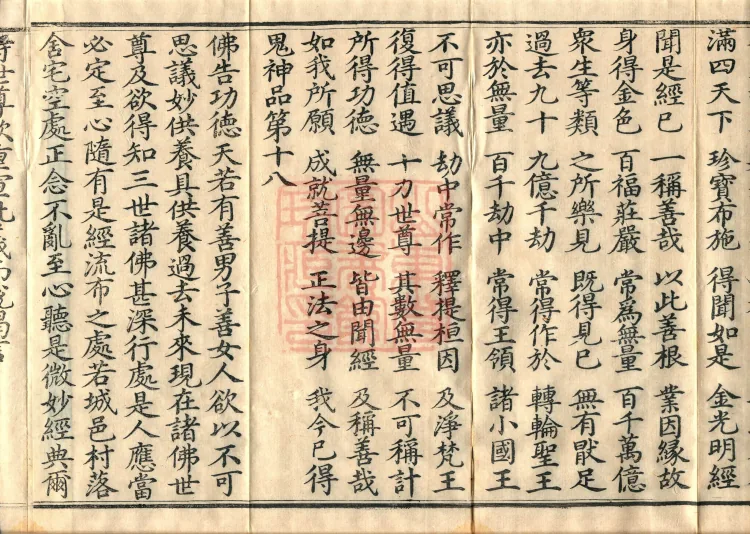 滿四天下 珍寶布施 得聞如是 金光明經
聞是經已 一稱善哉 以此善根 業因緣故
身得金色 百福莊嚴 常爲無量 百千萬億
眾生等類 之所樂見 既得見已 無有猒足
過去九十 九億千劫 常得作於 轉輪聖王
亦於無量 百千劫中 常得王領 諸小國王
不可思議 劫中常作 釋提桓因 及淨梵王
復得值遇 十力世尊 其數無量 不可稱計
所得功德 無量無邊 皆由聞經 及稱善哉
如我所願 成就菩提 正法之身 我今已得
鬼神品第十八
佛告功德天若有善男子善女人欲以不可
思議妙供養具供養過去未來現在諸佛世
尊及欲得知三世諸佛甚深行處是人應當
必定至心隨有是經流布之處若城邑村落
舍宅空處正念不亂至心聽是微妙經典爾
時世尊欲重宣此義而說偈言